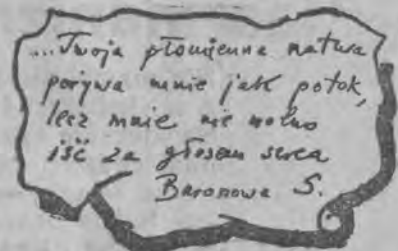 ...Twoja płomienna natura
porywa mnie jak potok,
lecz mnie nie wolno
iść za głosem serca
Baronowa S.